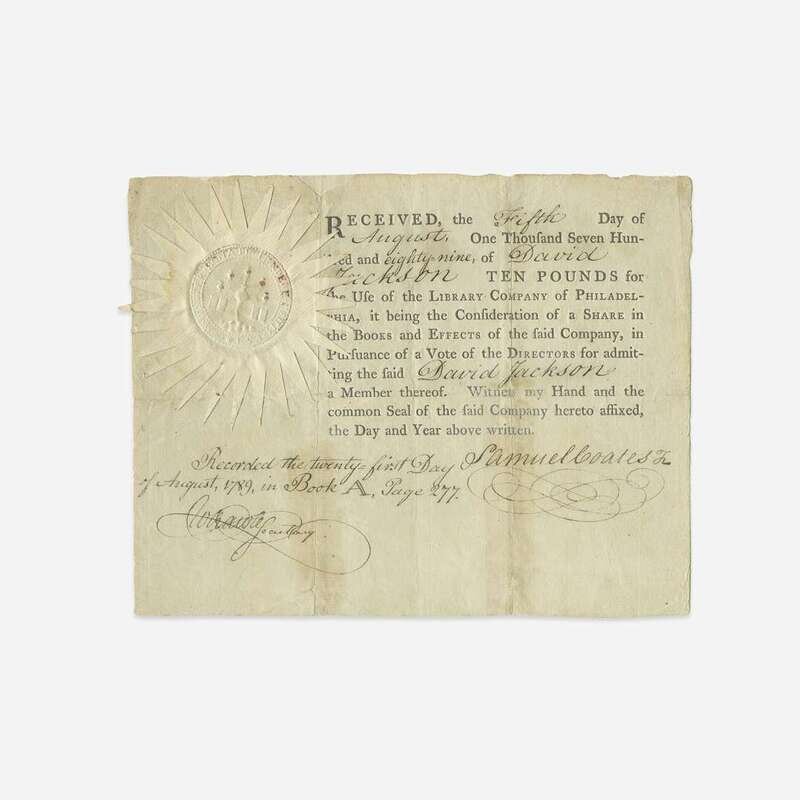 RECEIVED, the Fifth Day of
August, One Thouſand Seven Hun-
dred and eighty-nine, of David
Jackson TEN POUNDS for
the Uſe of the LIBRARY COMPANY OF PHILADEL-
PHIA, it being the Conſideration of a SHARE in
the BOOKS and EFFECTS of the ſaid Company, in
Purſuance of a Vote of the DIRECTORS for admit-
ting the ſaid David Jackson
a Member thereof. Witneſs my Hand and the
common Seal of the ſaid Company hereto affixed,
the Day and Year above written.
Samuel Coates
Recorded the twenty-first Day
of August, 1789, in Book A, Page 277.
Secretary